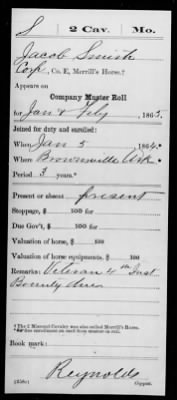 S 2 Cav. Mo.
Jacob Smith
Corp, Co. E, Merrill's Horse.†
Appears on
Company Muster Roll
for Jan & Feby, 1865.
Joined for duty and enrolled:
When Jan 5, 1864.*
Where Brownsville Ark
Period 3 years.*
Present or absent present
Stoppage, $ 100 for
Due Gov't, $ 100 for
Valuation of horse, $ 100
Valuation of horse equipments, $ 100
Remarks: Veteran 4th Inst
Bounty due
†The 2 Missouri Cavalry was also called Merrill's Horse.
*See enrollment on card from muster-in roll.
Book mark:
Reynolds
(358c) Copyist.